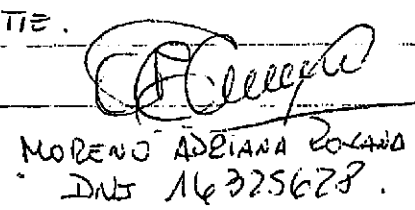 TIE.
MORENO ADRIANA ROXANA
DNI 16325628.